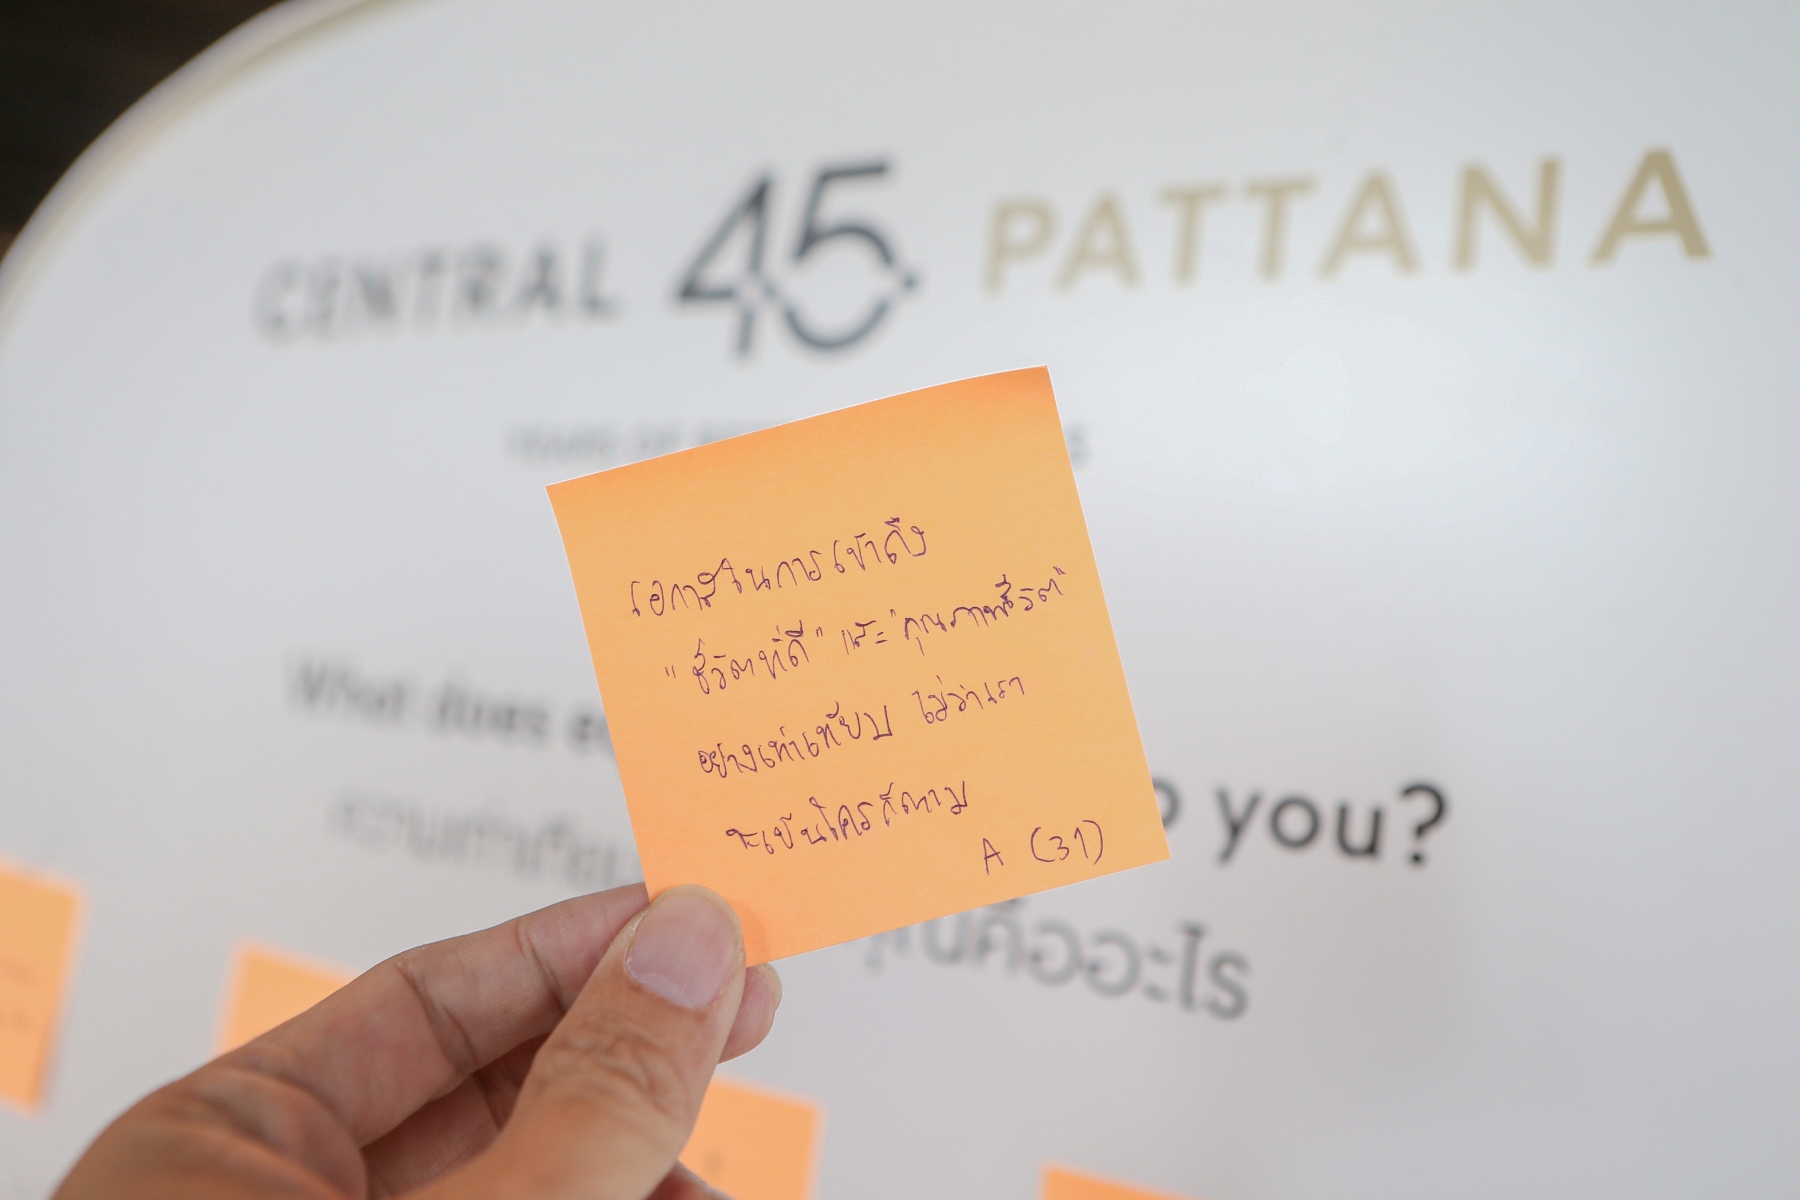 CENTRAL 45 PATTANA
YEARS OF
โอกาสในการเข้าถึง
"ชีวิตที่ดี" และ "คุณภาพชีวิต"
อย่างเท่าเทียม ไม่ว่าเรา
จะเป็นใครก็ตาม
A (31)
What does
you?
ความเท่าเทียม
คืออะไร